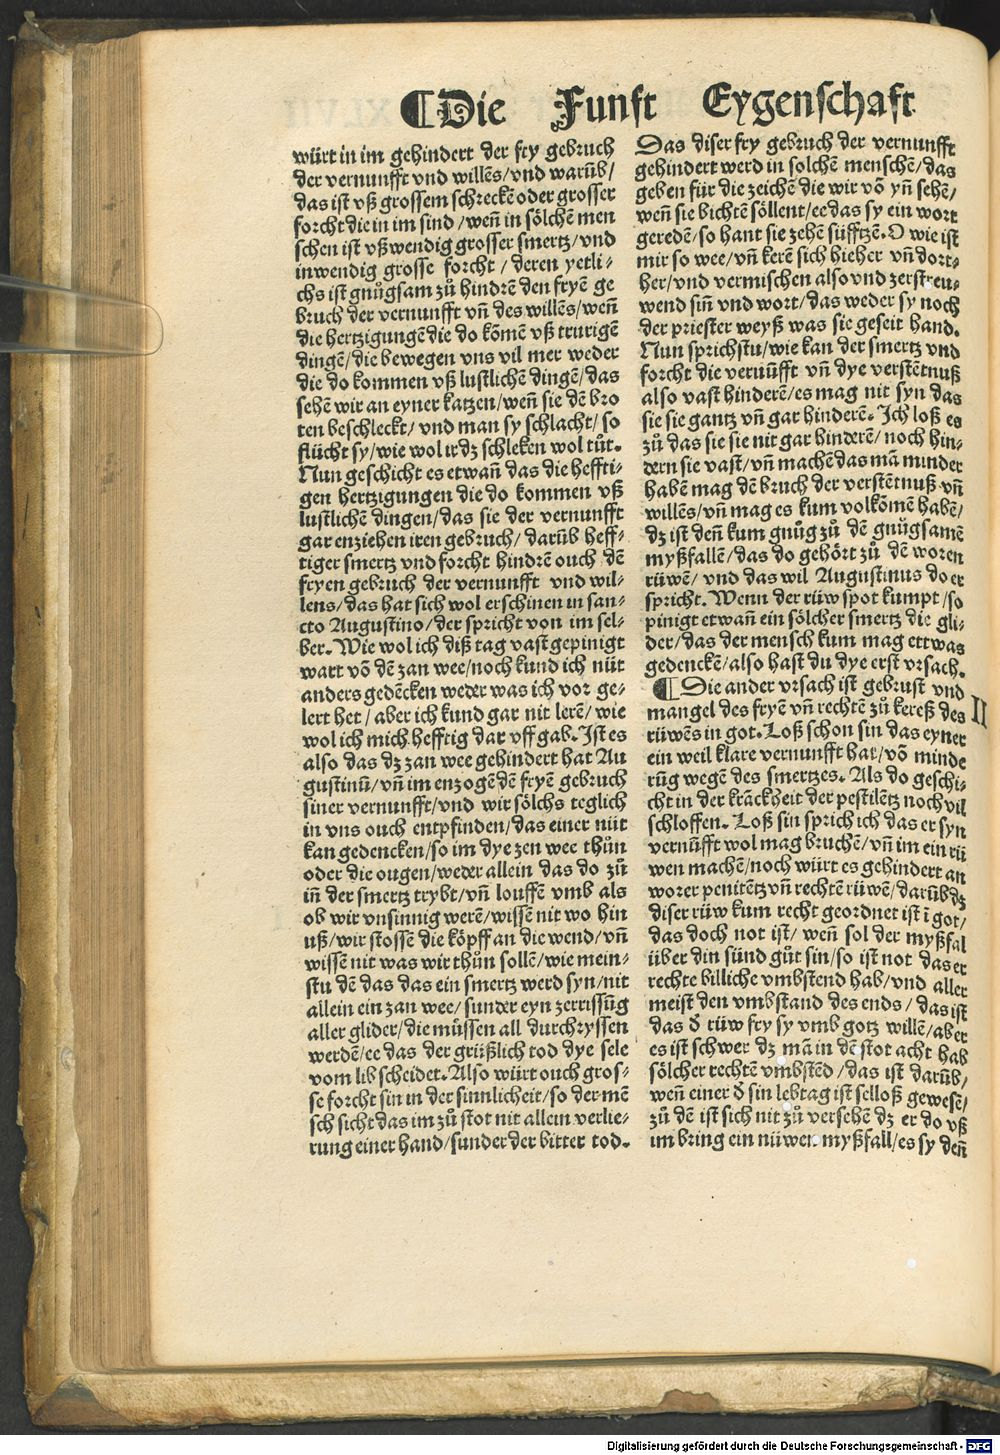 ¶Die Funft Eygenschaft
würt in im gehindert der fry gebruch
der vernunfft vnd willēs/vnd warūb/
das ist vß grossem schreckē oder grosser
forcht die in im sind/weñ in sölchē men
schen ist vßwendig grosser smertz/vnd
inwendig grosse forcht/deren yetli⸗
chs ist gnůgsam zů hindrē den fryē ge
bruch der vernunfft vñ des willēs/weñ
die hertzigungē die do kōmē vß trurigē
dingē/die bewegen vns vil mer weder
die do kommen vß lustlichē dingē/das
sehē wir an eyner katzen/weñ sie dē bro
ten beschleckt/vnd man sy schlacht/so
flücht sy/wie wol ir dz schleken wol tůt.
Nun geschicht es etwañ das die heffti⸗
gen hertzigungen die do kommen vß
lustlichē dingen/das sie der vernunfft
gar enziehen iren gebruch/darūb heff⸗
tiger smertz vnd forcht hindrē ouch dē
fryen gebruch der vernunfft vnd wil⸗
lens/das hat sich wol erschinen in san⸗
cto Augustino/der spricht von im sel⸗
ber. Wie wol ich diß tag vast gepinigt
wart vō dē zan wee/noch kund ich nüt
anders gedēcken weder was ich vor ge⸗
lert het/aber ich kund gar nit lerē/wie
wol ich mich hefftig dar vff gab. Ist es
also das dz zan wee gehindert hat Au
gustinū/vñ im enzogēdē fryē gebruch
siner vernunfft/vnd wir sölchs teglich
in vns ouch entpfinden/das einer nüt
kan gedencken/so im dye zen wee thün
oder die ougen/weder allein das do zů
iñ der smertz trybt/vñ louffē vmb als
ob wir vnsinnig werē/wissē nit wo hin
uß/wir stossē die köpff an die wend/vñ
wissē nit was wir thůn sollē/wie mein⸗
stu dē das das ein smertz werd syn/nit
allein ein zan wee/sunder eyn zerrissūg
aller glider/die müssen all durchryssen
werdē/ee das der grüßlich tod dye sele
vom lib scheidet. Also würt ouch gros⸗
se forcht sin in der sinnlicheit/so der mē
sch sicht das im zů stot nit allein verlie⸗
rung einer hand/sunder der bitter tod.
Das diser fry gebruch der vernunfft
gehindert werd in solchē menschē/das
geben für die zeichē die wir vō yñ sehē/
weñ sie bichtē söllent/ee das sy ein wort
geredē/so hant sie zehē süfftzē. O wie ist
mir so wee/vñ kerē sich hieher vñ dort⸗
her/vnd vermischen also vnd zerstreu⸗
wend siñ vnd wort/das weder sy noch
der priester weyß was sie geseit hand.
Nun sprichstu/wie kan der smertz vnd
forcht die vernūfft vñ dye verstētnuß
also vast hinderē/es mag nit syn das
sie sie gantz vñ gar hinderē. Ich loß es
zů das sie sie nit gar hinderē/noch hin⸗
dern sie vast/vñ machē das mā minder
habē mag dē bruch der verstētnuß vñ
willēs/vñ mag es kum volkōmē habē/
dz ist deñ kum gnůg zů dē gnůgsamē
myßfallē/das do gehört zů dē woren
rüwē/vnd das wil Augustinus do er
spricht. Wenn der rüw spot kumpt/so
pinigt etwañ ein sölcher smertz die gli⸗
der/das der mensch kum mag ettwas
gedenckē/also hast du dye erst vrsach.
¶Die ander vrsach ist gebrust vnd
mangel des fryē vñ rechtē zů kereß des
II
rüwēs in got. Loß schon sin das eyner
ein weil klare vernunfft hat/vō minde
rūg wegē des smertzes. Als do geschi⸗
cht in der krāckheit der pestilētz noch vil
schloffen. Loß sin sprich ich das er syn
vernūfft wol mag bruchē/vñ im ein rü
wen machē/noch würt es gehindert an
worer penitētz vñ rechtē rüwē/darūb dz
diser rüw kum recht geordnet ist ī got/
das doch not ist/weñ sol der myßfal
über din sünd gůt sin/so ist not das er
rechte billiche vmbstend hab/vnd aller
meist den vmbstand des ends/das ist
das ð rüw fry sy vmb gotz willē/aber
es ist schwer dz mā in dē stot acht hab
sölcher rechtē vmbstēd/das ist darūb/
weñ einer ð sin lebtag ist selloß gewesē/
zů dē ist sich nit zů versehē dz er do vß
im bring ein nüwen myßfall/es sy deñ
Digitalisierung gefördert durch die Deutsche Forschungsgemeinschaft - DFG